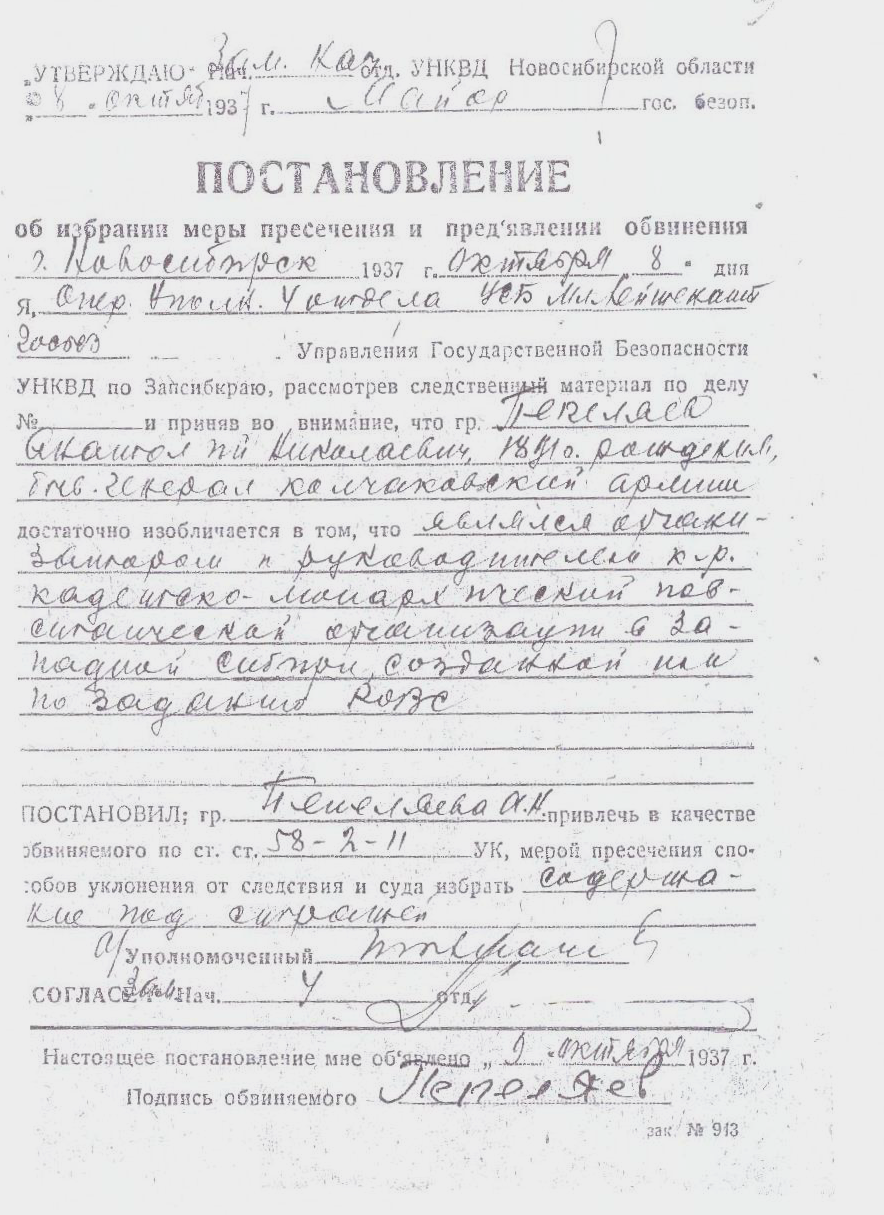 „УТВЕРЖДАЮ" Зам. Нач. отд. УНКВД Новосибирской области
„8" октяб 1937 г. Майор гос. безоп.
ПОСТАНОВЛЕНИЕ
об избрании меры пресечения и пред'явлении обвинения
г. Новосибирск 1937 г. октября „8" дня
Я, Опер. Уполн. 4 отдела УГБ Мл. Лейтенант
Госбез Управления Государственной Безопасности
УНКВД по Запсибкраю, рассмотрев следственный материал по делу
№ и приняв во внимание, что гр. Пепеляев
Анатолий Николаевич, 1891 г. рождения,
быв. Генерал колчаковской армии
достаточно изобличается в том, что являлся органи-
затором и руководителем к.р.
кадетско-монархической пов-
станческой организации в За-
падной Сибири, созданной им
по заданию РОВС
ПОСТАНОВИЛ; гр. Пепеляева А.Н. привлечь в качестве
обвиняемого по ст. ст. 58-2-11 УК, мерой пресечения спо-
собов уклонения от следствия и суда избрать содержа-
ние под стражей
О/Уполномоченный
СОГЛАСЕН: Зам. Нач. 4 отд.
Настоящее постановление мне об'явлено „9" октября 1937 г.
Подпись обвиняемого Пепеляев
зак. № 913